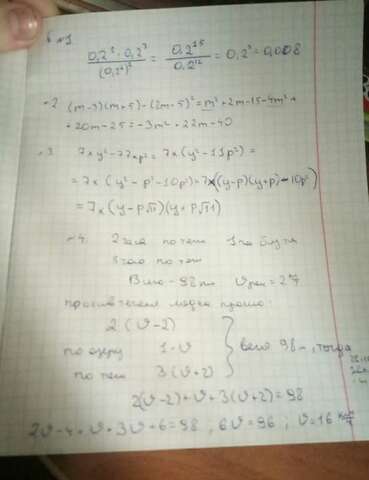 №1
0,2³ 0,2³ / (0,2⁴)³ = 0,2¹⁵ / 0,2¹² = 0,2³ = 0,008
№2 (m-3)(m+5) - (2m-5)² = m² + 2m - 15 - 4m² +
+ 20m - 25 = -3m² + 22m - 40
3 7xy² - 77xp² = 7x(y² - 11p²) =
= 7x(y² - p² - 10p²) = 7x((y-p)(y+p) - 10p²)
= 7x(y - p√11)(y + p√11)
№4. 2 часа по теч
3 по теч
Всего - 98 км V = 2
против течен лодка прошла:
2(v-2)
по озеру 1·v
по теч 3(v+2)
всего 98, тогда
2(v-2) + v + 3(v+2) = 98
2v - 4 + v + 3v + 6 = 98; 6v = 96; v = 16 км/ч